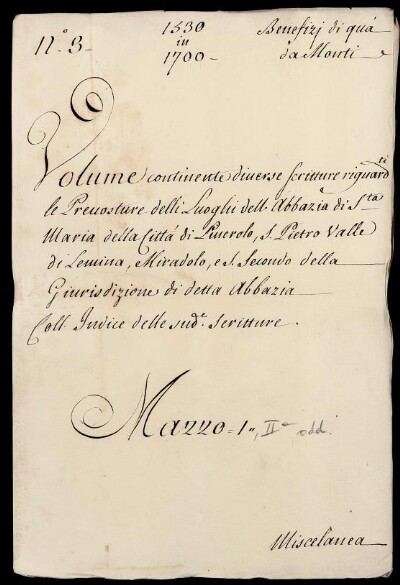 N.º 3-
1530
in
1700-
Benefizj di quá
da Monti
Volume continente diverse scritture riguard.ti
le Prevosture delli Luoghi dell'Abbazia di S.ta
Maria della Cittá di Pinerolo, S. Pietro Valle
di Lemina, Miradolo, e S. Secondo della
Giurisdizione di detta Abbazia
Coll'Indice delle sud.e scritture.
Mazzo = 1.º, II.º add.
Miscelanea